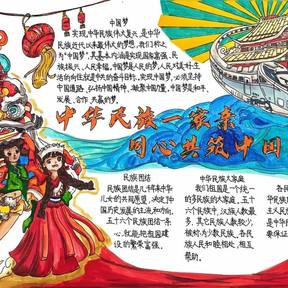 中国梦
实现中华民族伟大复兴,是中华
民族近代以来最伟大的梦想,我们称之
为“中国梦”,其基本内涵是实现国家富强、民
族振兴、人民幸福。中国梦是人民的梦,人民对美好生
活的向往就是中国的奋斗目标,实现中国梦,必须坚持
中国道路、弘扬中国精神、凝聚中国力量。中国梦是和平、
发展、合作、共赢的梦。
中华民族一家亲
同心共筑中国
民族团结
民族团结是几千年来中华
儿女的共同愿望,决定中
国历史发展的主流和方向。
五十六个民族团结一条
心,就能把祖国建
设的繁荣富强。
中华民族大家庭
我们祖国是一个统一
的多民族的大家庭,五十
六个民族中,汉族人数最
多,其它民族人数较少,
被称为少数民族,各民
族人民和睦相处,相互
帮助。